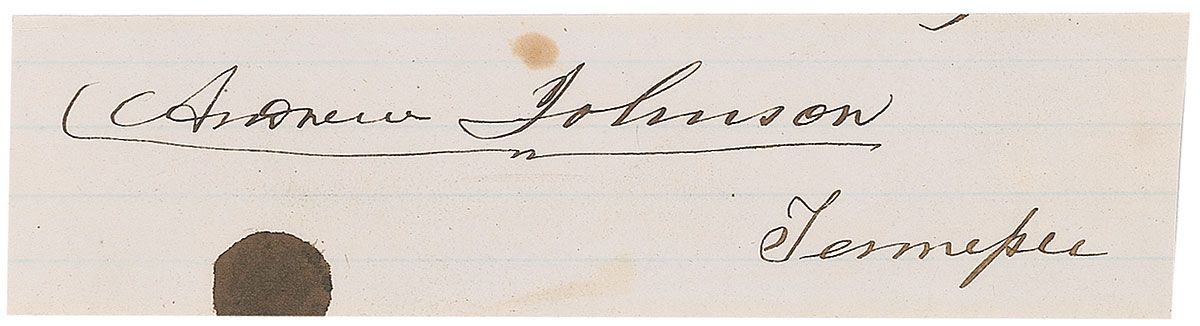 Andrew Johnson
Tennessee